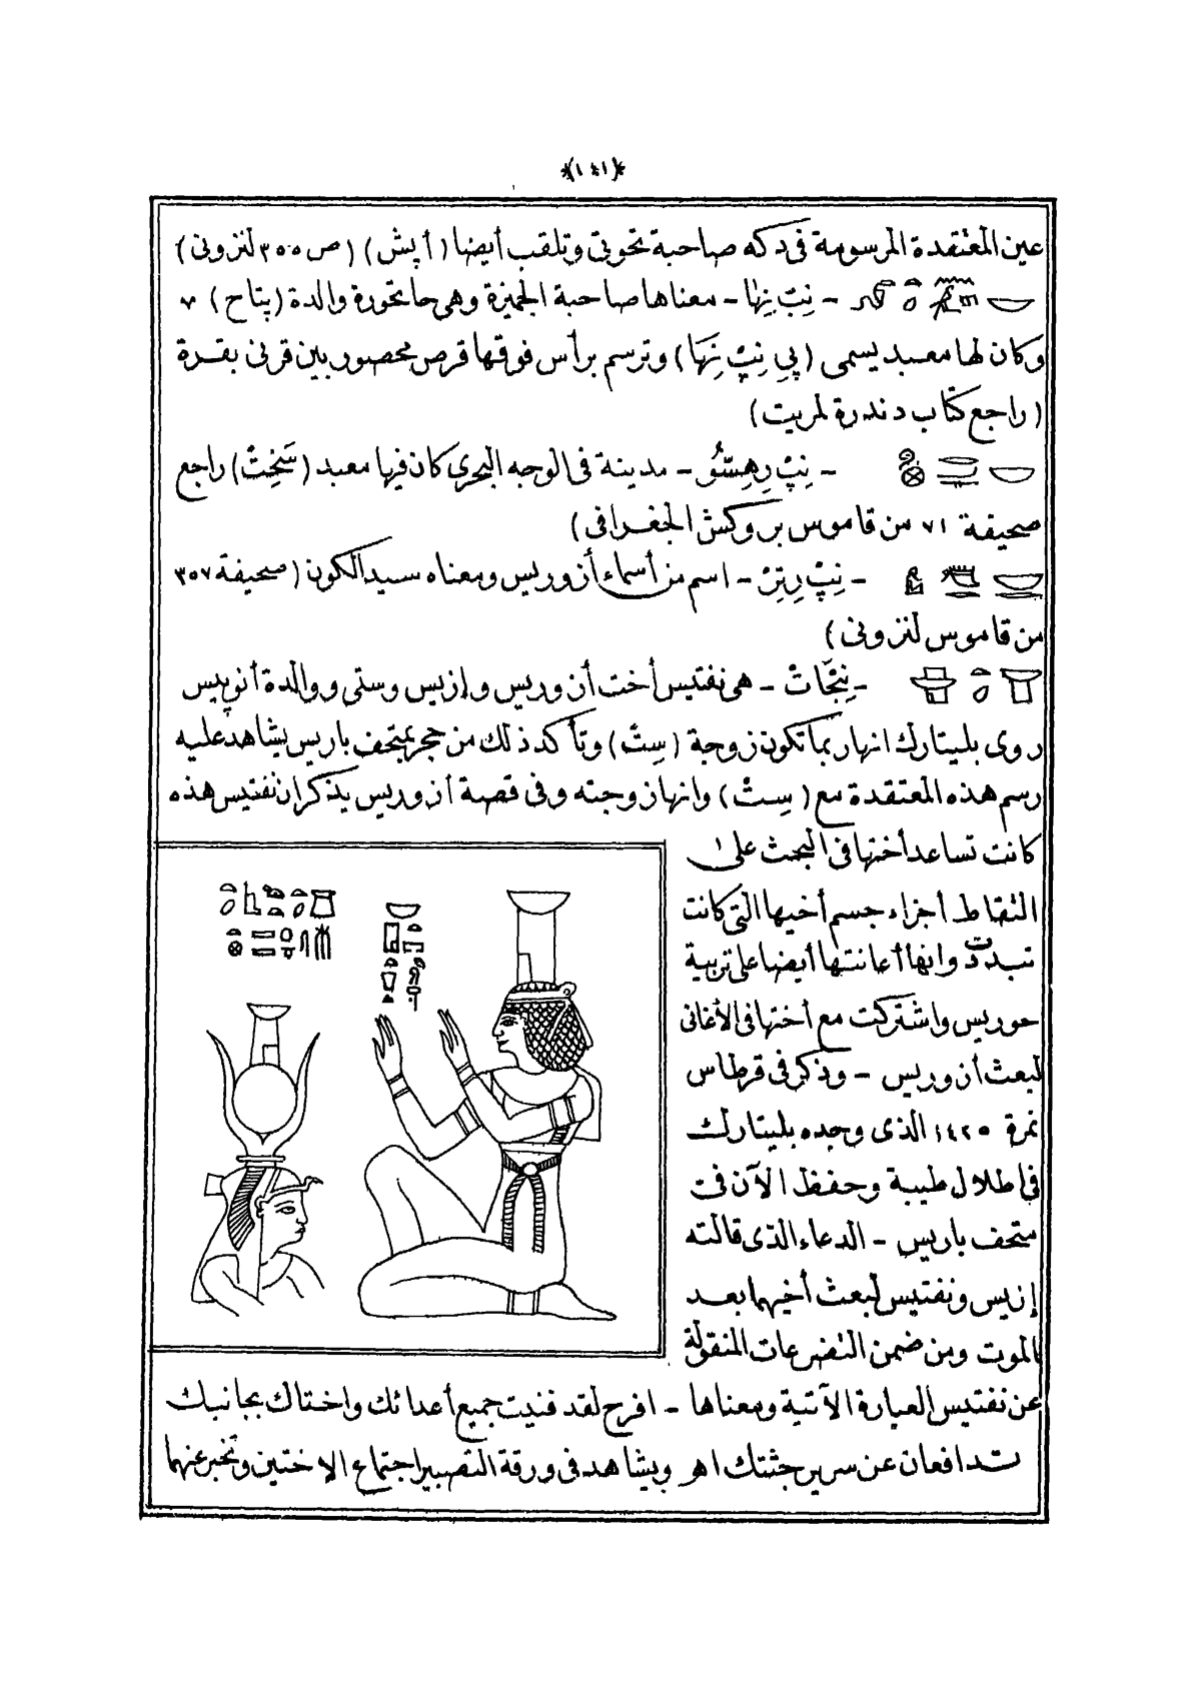 *(١٤١)*
عين المعتقدة المرسومة فى دكه صاحبة تحوتى وتلقب أيضا (أپش) (ص ٣٥٥ لنزونى)
- نِبْ نِهَا - معناها صاحبة الجميزة وهى حاتحورة والدة (پتاح) ٧
وكان لها معبد يسمى (پِي نِبْ نِهَا) وترسم برأس فوقها قرص محصور بين قرنى بقرة
(راجع كتاب دندرة لمريت)
- نِبْ رِهِسُّو - مدينة فى الوجه البحرى كان فيها معبد (سَخِتْ) راجع
صحيفة ٧١ من قاموس بروكش الجغرافى)
- نِبْ رِتِرْ - اسم من أسماء أزوريس ومعناه سيد الكون (صحيفة ٣٥٧
من قاموس لنزونى)
- نِبْحَاتْ - هى نفتيس أخت أزوريس وإزيس وستى ووالدة أنوبيس
روى بليتارك انها ربما تكون زوجة (سِتْ) وتأكد ذلك من حجر بمتحف باريس يشاهد عليه
رسم هذه المعتقدة مع (سِتْ) وانها زوجته وفى قصة أزوريس يذكر ان نفتيس هذه
كانت تساعد أختها فى البحث على
التقاط أجزاء جسم أخيها التى كانت
تبددت وانها أعانتها أيضا على تربية
حوريس واشتركت مع أختها فى الأغانى
لبعث أزوريس - وذكر فى قرطاس
نمرة ١٤٢٥ الذى وجده بليتارك
فى إطلال طيبة وحفظ الآن فى
متحف باريس - الدعاء الذى قالته
إزيس ونفتيس لبعث أخيهما بعد
الموت ومن ضمن التضرعات المنقولة
عن نفتيس العبارة الآتية ومعناها - افرح لقد فنيت جميع أعدائك واختاك بجانبك
تدافعان عن سرير جثتك اهـ ويشاهد فى ورقة التصبير اجتماع الاختين وتخبر عنهما